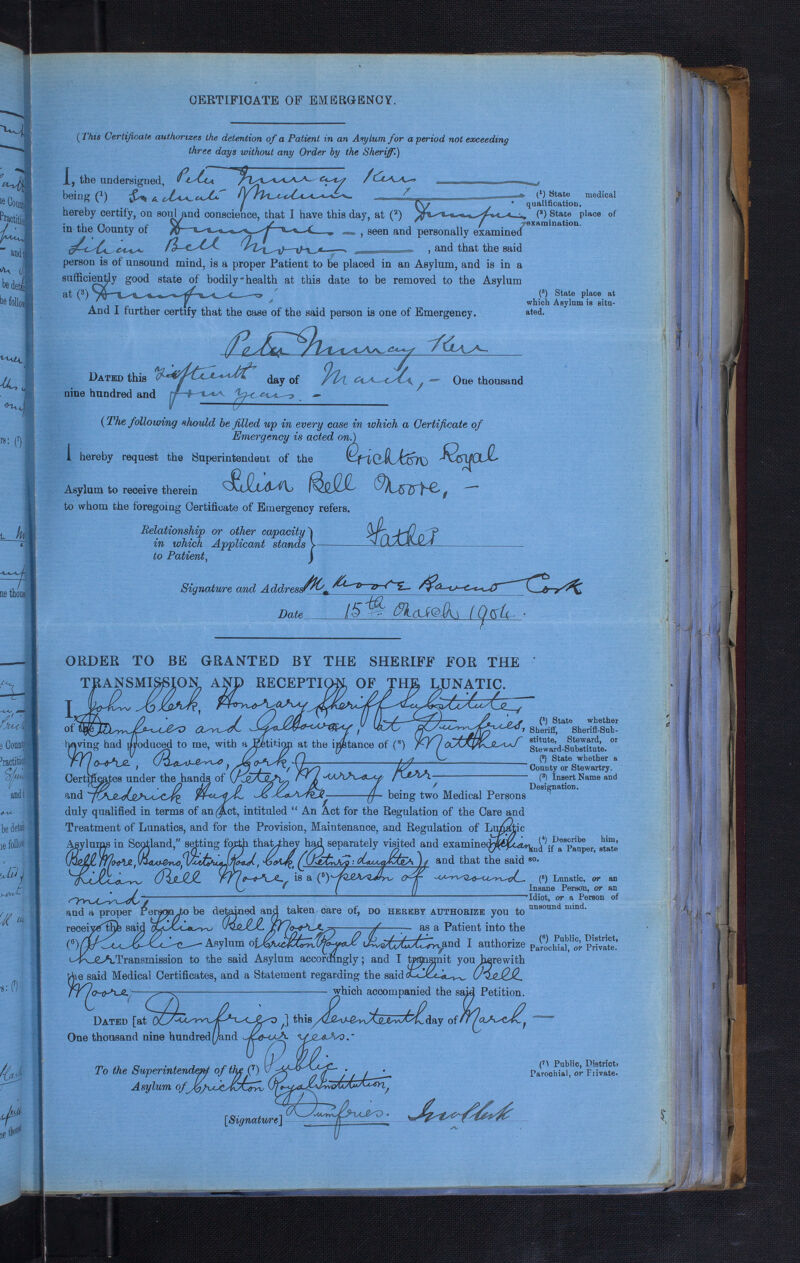 CERTIFICATE OF EMERGENCY.
(This Certificate authorizes the detention of a Patient in an Asylum for a period not exceeding
three days without any Order by the Sheriff.)
I, the undersigned, Peter Murray Kerr
being (1) Graduate Medicine
(1) State medical
qualification.
hereby certify, on soul and conscience, that I have this day, at (2) Dumfries
(2) State place of
examination.
in the County of Dumfries, seen and personally examined
Lilian Bell Moore, and that the said
person is of unsound mind, is a proper Patient to be placed in an Asylum, and is in a
sufficiently good state of bodily health at this date to be removed to the Asylum
at (3) Dumfries
(3) State place at
which Asylum is situ-
ated.
And I further certify that the case of the said person is one of Emergency.
Peter Murray Kerr
DATED this Fifteenth day of March, - One thousand
nine hundred and four years. -
(The following should be filled up in every case in which a Certificate of
Emergency is acted on.)
I hereby request the Superintendent of the Crichton Royal
Asylum to receive therein Lilian Bell Moore, -
to whom the foregoing Certificate of Emergency refers.
Relationship or other capacity
in which Applicant stands
to Patient,
Father
Signature and Address M. Moore Baveno Cork
Date 15th March 1904.
ORDER TO BE GRANTED BY THE SHERIFF FOR THE
TRANSMISSION AND RECEPTION OF THE LUNATIC.
I John Clerk, Honorary Sheriff Substitute,
of Dumfries and Galloway, at Dumfries,
(1) State whether
Sheriff, Sheriff-Sub-
stitute, Steward, or
Steward-Substitute.
having had produced to me, with a Petition at the instance of (3) Matthew
(2) State whether a
County or Stewartry.
Moore, Baveno, Cork,
Certificates under the hands of Peter Murray Kerr
(3) Insert Name and
Designation.
and Frederick Hugh Clarke being two Medical Persons
duly qualified in terms of an Act, intituled "An Act for the Regulation of the Care and
Treatment of Lunatics, and for the Provision, Maintenance, and Regulation of Lunatic
Asylums in Scotland," setting forth that they had separately visited and examined Lilian
(4) Describe him,
and if a Pauper, state
so.
Bell Moore, Baveno, Victoria Road, Cork, (Petnrs: daughter), and that the said
Lilian Bell Moore, is a (5) person of unsound
(5) Lunatic, or an
Insane Person, or an
Idiot, or a Person of
unsound mind.
mind,
and a proper Person to be detained and taken care of, DO HEREBY AUTHORIZE you to
receive the said Lilian Bell Moore as a Patient into the
(6) Public Asylum of Crichton Royal Institution, and I authorize
(6) Public, District,
Parochial, or Private.
her Transmission to the said Asylum accordingly; and I transmit you herewith
the said Medical Certificates, and a Statement regarding the said Lilian Bell
Moore, which accompanied the said Petition.
DATED [at Dumfries,] this Seventeenth day of March, -
One thousand nine hundred and four years.-
To the Superintendent of the (7) Public
(7) Public, District,
Parochial, or Private.
Asylum of Crichton Royal Institution,
Dumfries.
[Signature] Jno Clerk